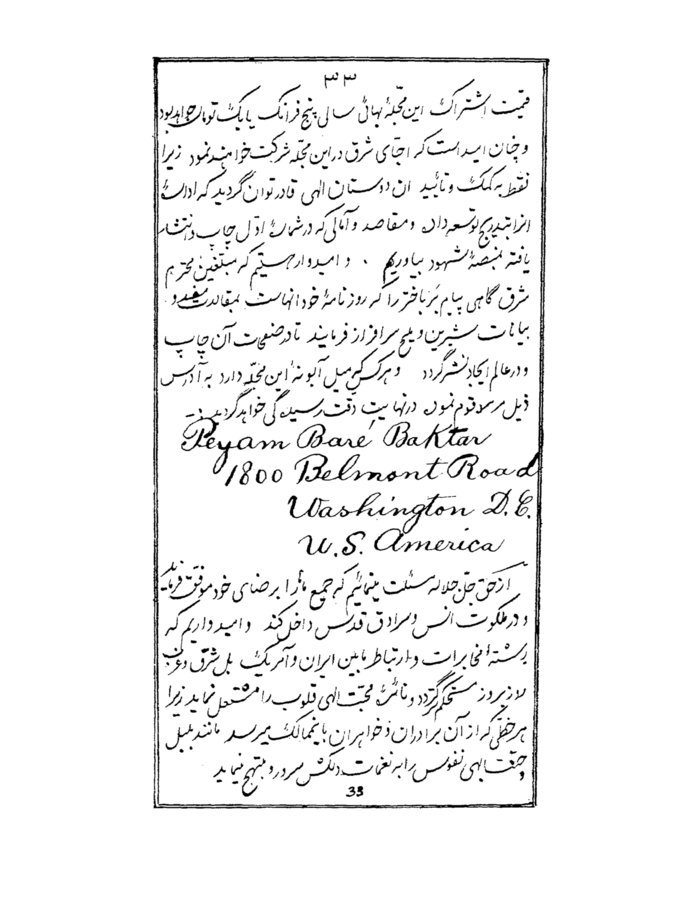 ٣٣
قیمت اشتراک این مجلهٔ بهائی سالی پنج فرانک یا یک تومان خواهد بود
و چنان امید است که احبای شرق در این مجله شرکت خواهند نمود زیرا
فقط به کمک و تأیید آن دوستان الهی قادر توان گردید که ادارهٔ
انرا بتدریج توسعه داده و مقاصد و آمالی که در شمارهٔ اوّل چاپ و انتشار
یافته بمنصهٔ شهود بیاوریم ٠ و امیدوار هستیم که مبلّغین محترم
شرق گاهی پیام بَر باختر را که روزنامهٔ خود آنهاست بمقالات مفید و
بیانات شیرین و ملیح سرافراز فرمایند تا در صفحات آن چاپ
و در عالم ایجاد نشر گردد و هر کس که میل آبونهٔ این مجله دارد به آدرس
ذیل مرقوم نموده در نهایت دقت رسیده گی خواهد گردید :-
Peyam Baré Baktar
1800 Belmont Road
Washington D.C.
U.S. America
از حق جلّ جلاله مسئلت مینمائیم که جمیع ماها را بر رضای خود موفق فرماید
و در ملکوت انس و سرادق قدس داخل کند و امید داریم که
رشتهٔ مخابرات و ارتباط مابین ایران و آمریک بل شرق و غرب
روز بروز مستحکم گردد و نائرهٔ محبّت الهی قلوب را مشتعل نماید زیرا
هر خطّی که از آن برادران و خواهران باینممالک میرسد مانند بلبل
جنّت ابهی نفوس را به نغمات دلکش مسرور و مبتهج نماید
33